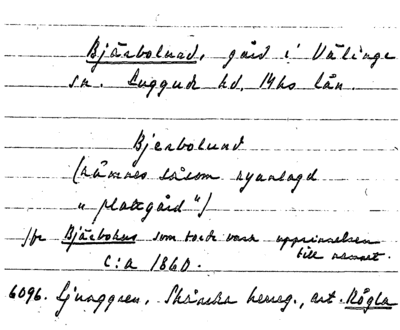 Bjärbolund, gård i Välinge
sn. Luggude hd. Mhs län.
Bjerbolund
(nämnes såsom nyanlagd
"plattgård")
jfr Bjärbohus som torde vara upprinnelsen
till namnet.
c:a 1860.
6096. Ljunggren, Skånska herreg., art. Rögla